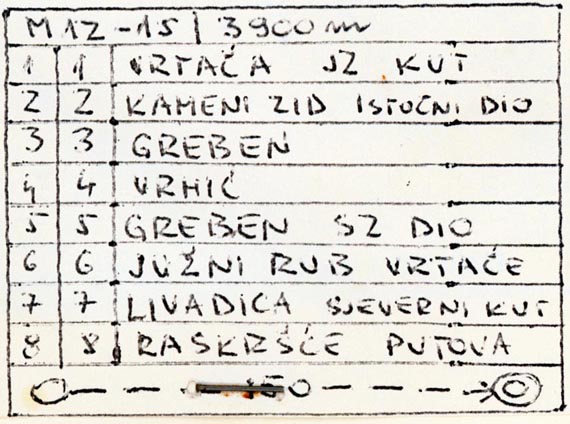 M12-15 3900m
1 1 VRTAČA JZ KUT
2 2 KAMENI ZID ISTOČNI DIO
3 3 GREBEN
4 4 VRHIĆ
5 5 GREBEN SZ DIO
6 6 JUŽNI RUB VRTAČE
7 7 LIVADICA SJEVERNI KUT
8 8 RASKRŠĆE PUTOVA